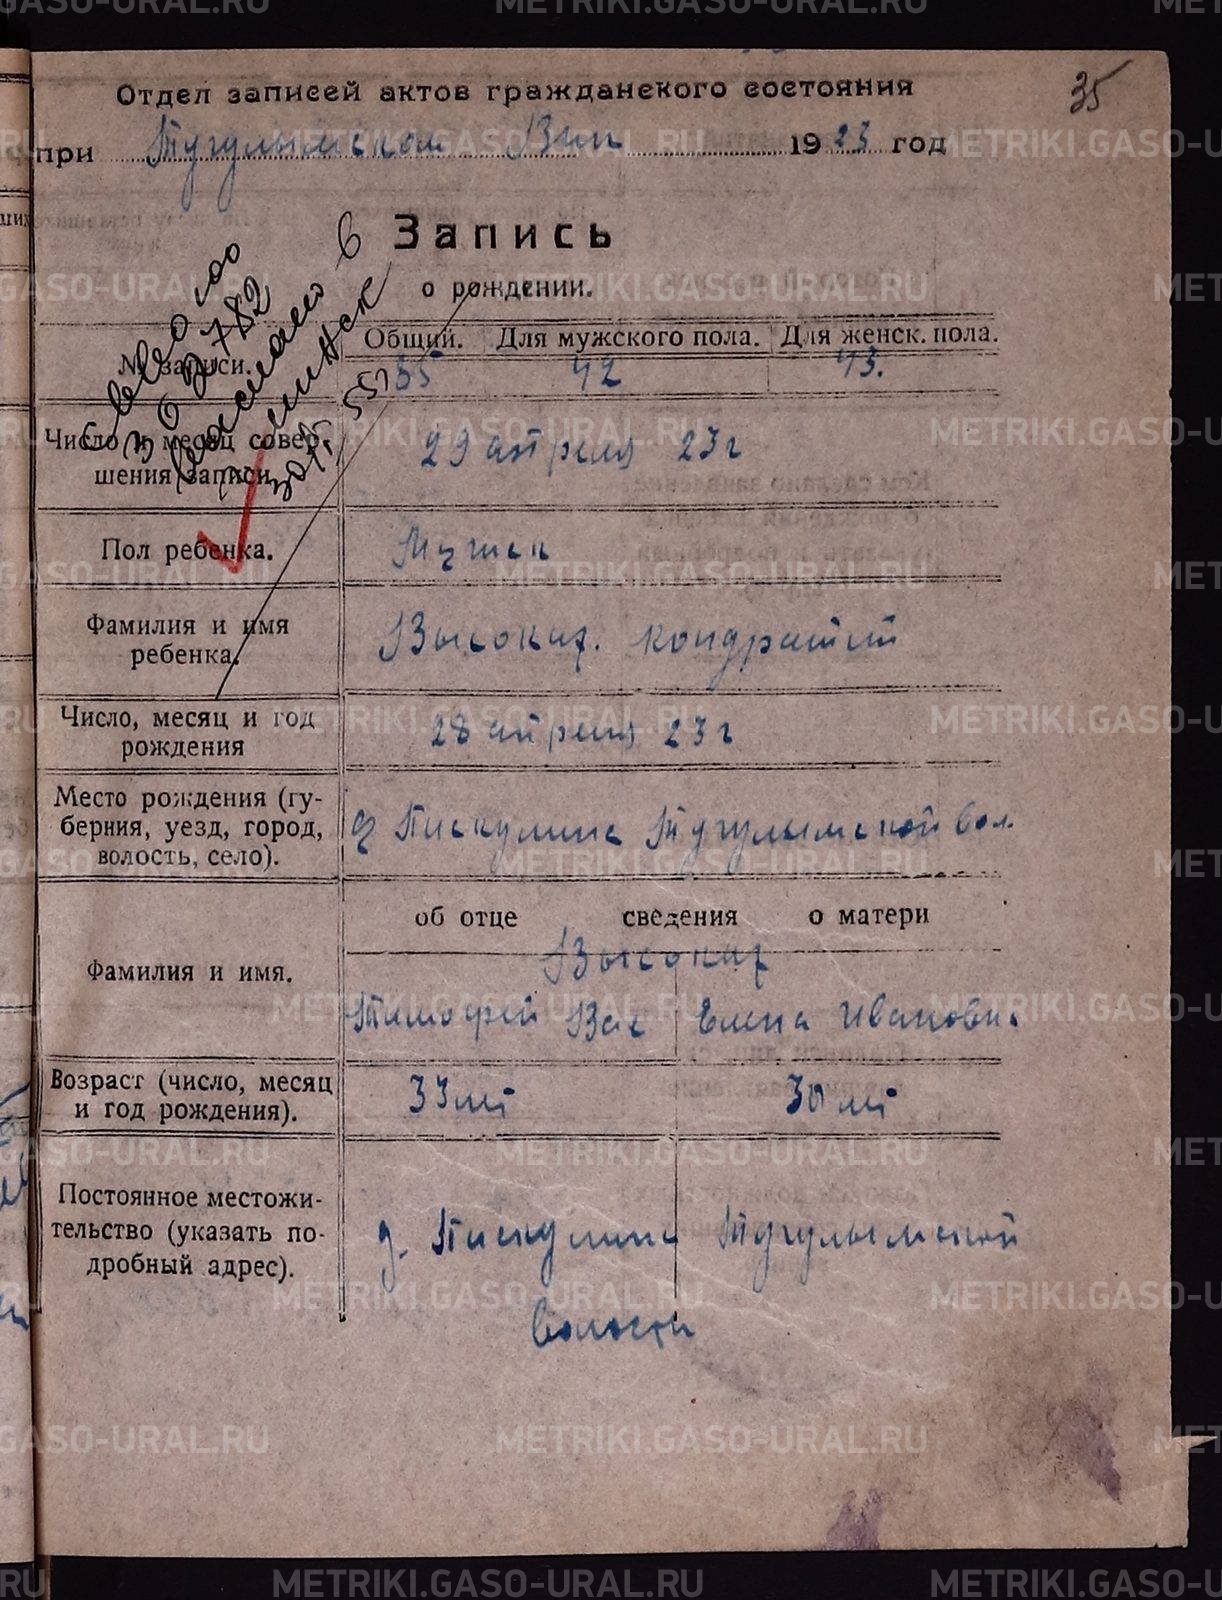 35
Отдел записей актов гражданского состояния
при Тугулымском Вик 1923 год
Запись
о рождении.
№ записи.
Общий. Для мужского пола. Для женск. пола.
55 42 43.
Число и месяц совер-
шения записи.
29 апреля 23 г
Пол ребенка.
Мужск
Фамилия и имя
ребенка.
Высоких. Кондратий
Число, месяц и год
рождения
28 апреля 23 г
Место рождения (гу-
берния, уезд, город,
волость, село).
д Пискулина Тугулымской вол.
об отце сведения о матери
Фамилия и имя.
Высоких
Тимофей Вас Елена Ивановна
Возраст (число, месяц
и год рождения).
33 лет 30 лет
Постоянное местожи-
тельство (указать по-
дробный адрес).
д. Пискулина Тугулымской
волости
METRIKI.GASO-URAL.RU